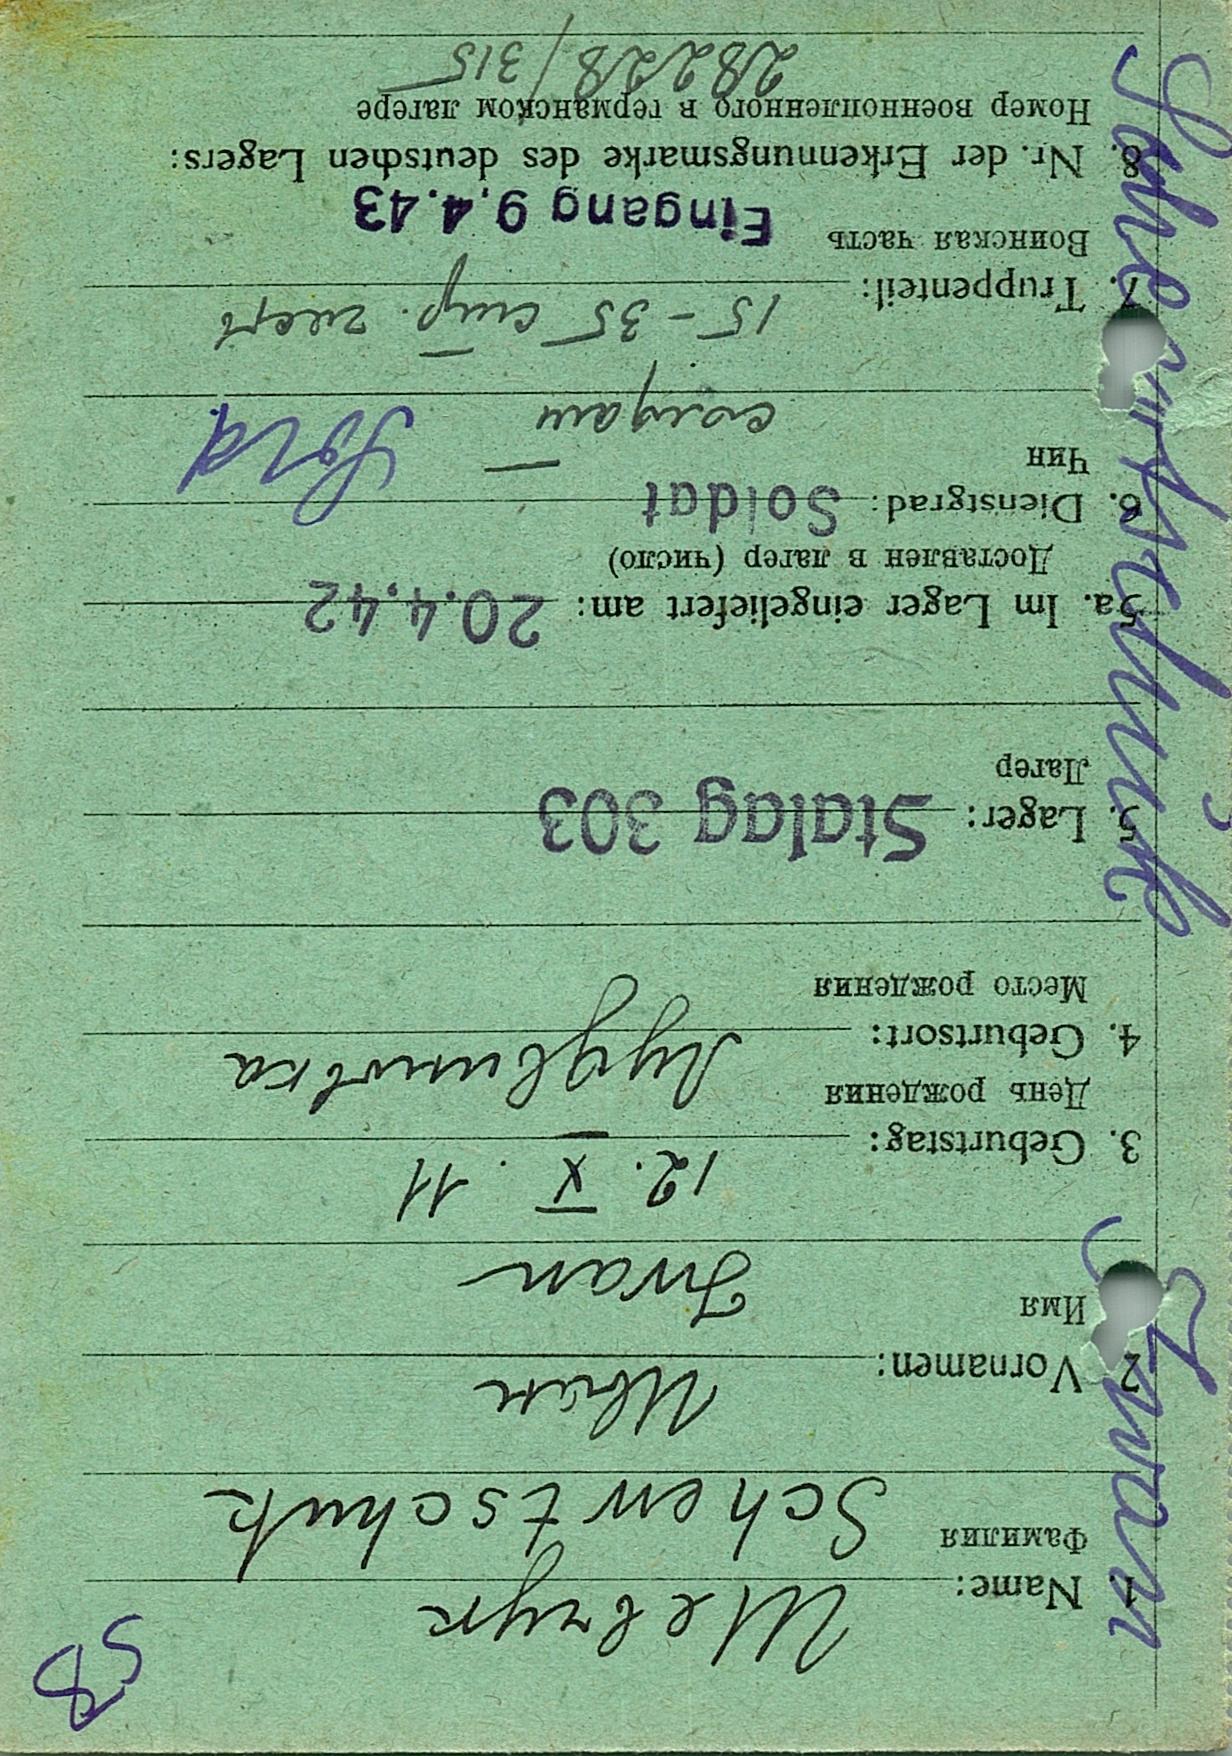 58
Шевчук
1. Name:
Фамилия
Schewtschuk
Иван
2. Vornamen:
Имя
Iwan
12. X. 11
3. Geburtstag:
День рождения
4. Geburtsort:
Место рождения
5. Lager: Stalag 303
Лагер
5a. Im Lager eingeliefert am: 20.4.42
Доставлен в лагер (число)
6. Dienstgrad: Soldat
Чин
Sold.
солдат
15 – 35 стр.
7. Truppenteil:
Воинская часть
Eingang 9.4.43
8. Nr. der Erkennungsmarke des deutschen Lagers:
Номер военнопленного в германском лагере
28228/315
Schewtschuk Iwan